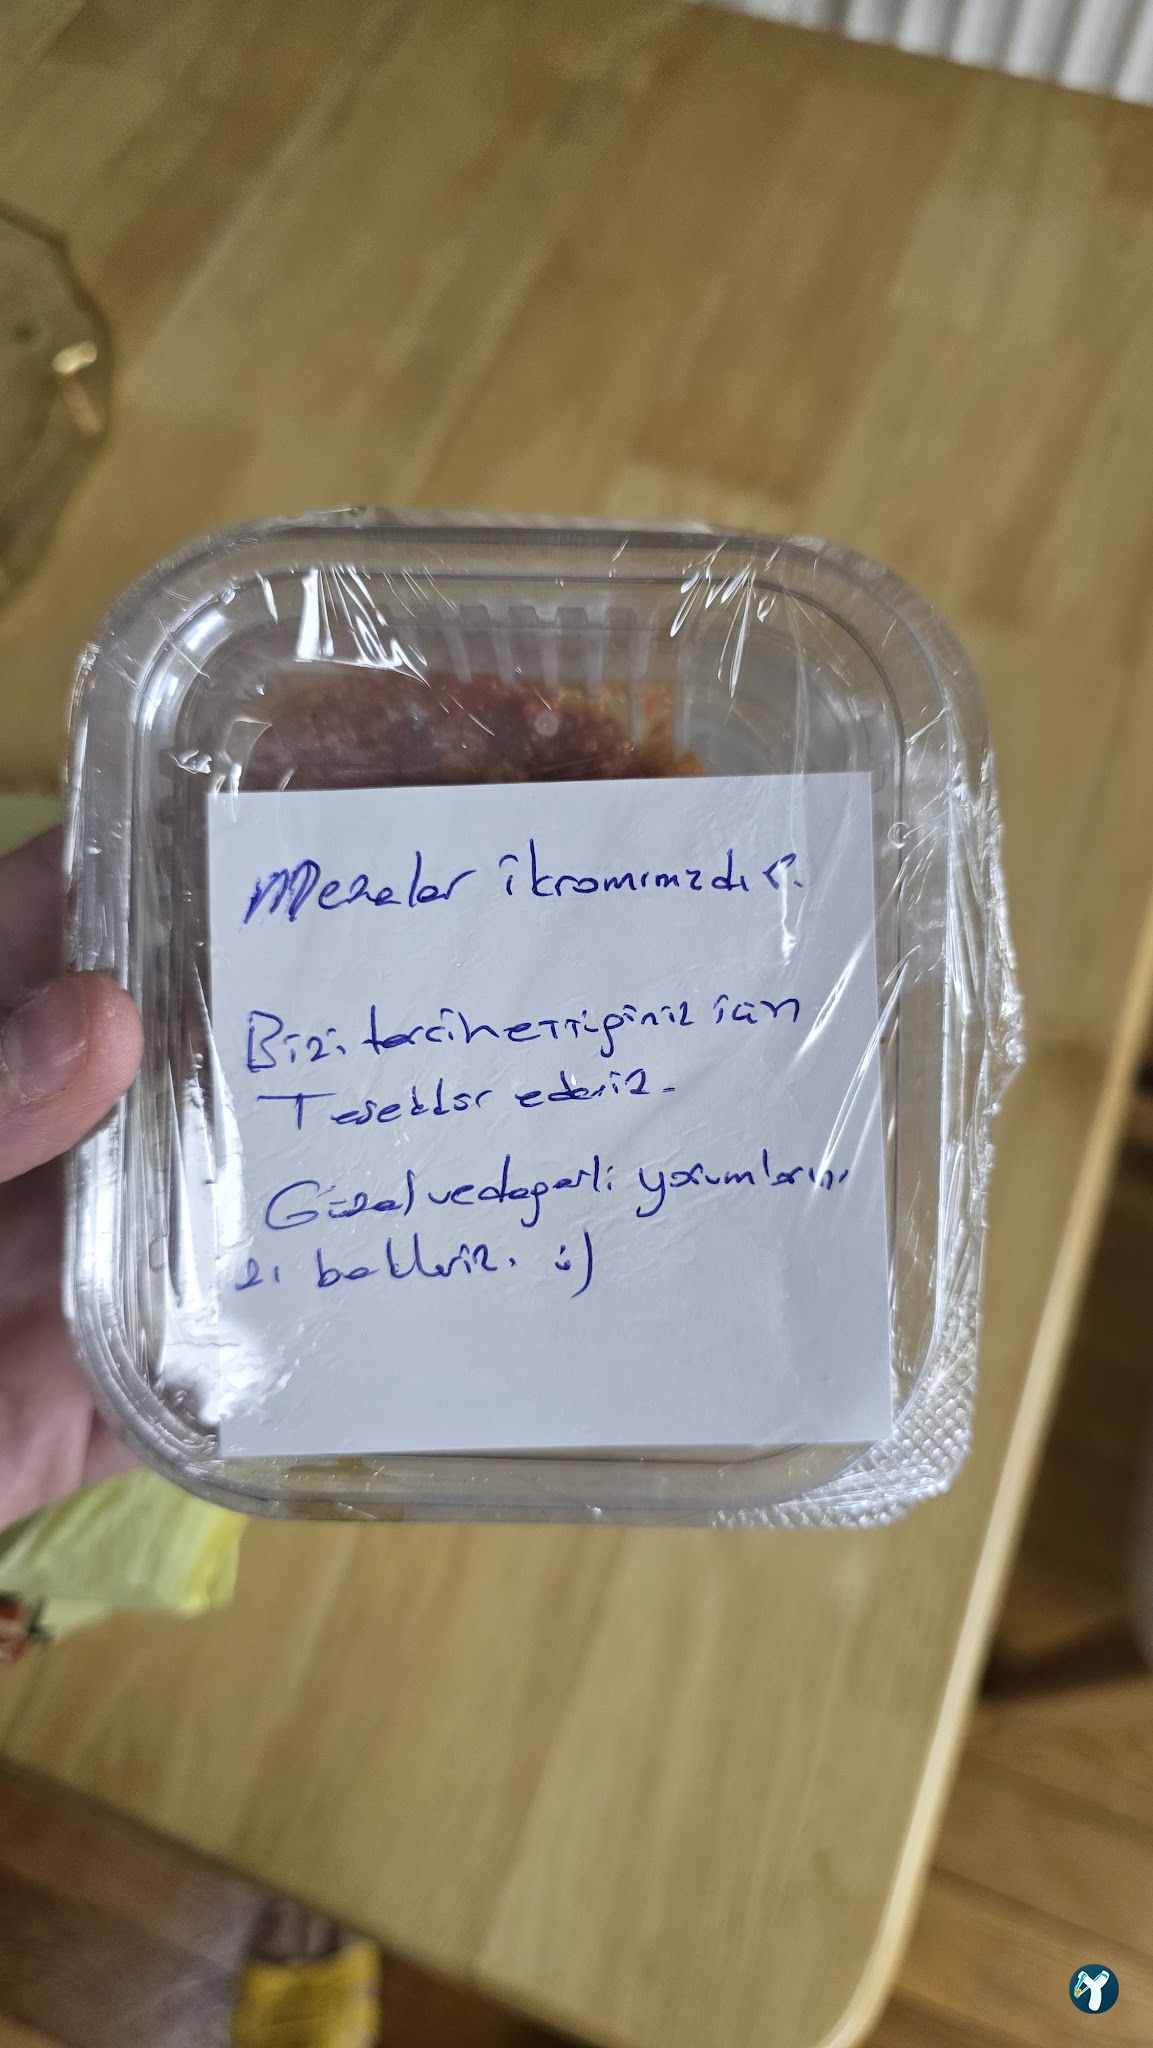 Mezeler ikramımızdır.
Bizi tercih ettiginiz için
Teşekkür ederiz.
Güzel ve degerli yorumlarını
zı bekleriz. :)